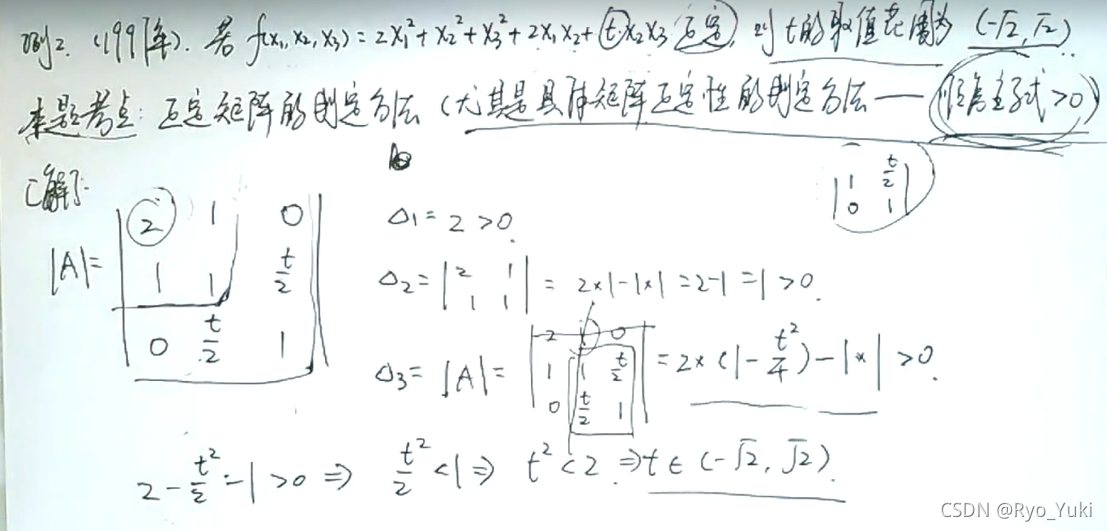 例2. (1997年). 若 f(x₁, x₂, x₃) = 2x₁² + x₂² + x₃² + 2x₁x₂ + tx₂x₃ 正定, 则 t 的取值范围为 (-√2, √2).
本题考点: 正定矩阵的判定方法 (尤其是具体矩阵正定性的判定方法 —— 顺序主子式 > 0)
[解]: | 1 t/2 ; 0 1 |
|A| = | 2 1 0 ; 1 1 t/2 ; 0 t/2 1 |
Δ1 = 2 > 0.
Δ2 = | 2 1 ; 1 1 | = 2×1-1×1 = 2-1 = 1 > 0.
Δ3 = |A| = | 2 1 0 ; 1 1 t/2 ; 0 t/2 1 | = 2×(1-t²/4)-1×1 > 0.
2 - t²/2 - 1 > 0 ⇒ t²/2 < 1 ⇒ t² < 2 ⇒ t ∈ (-√2, √2).
CSDN @Ryo_Yuki